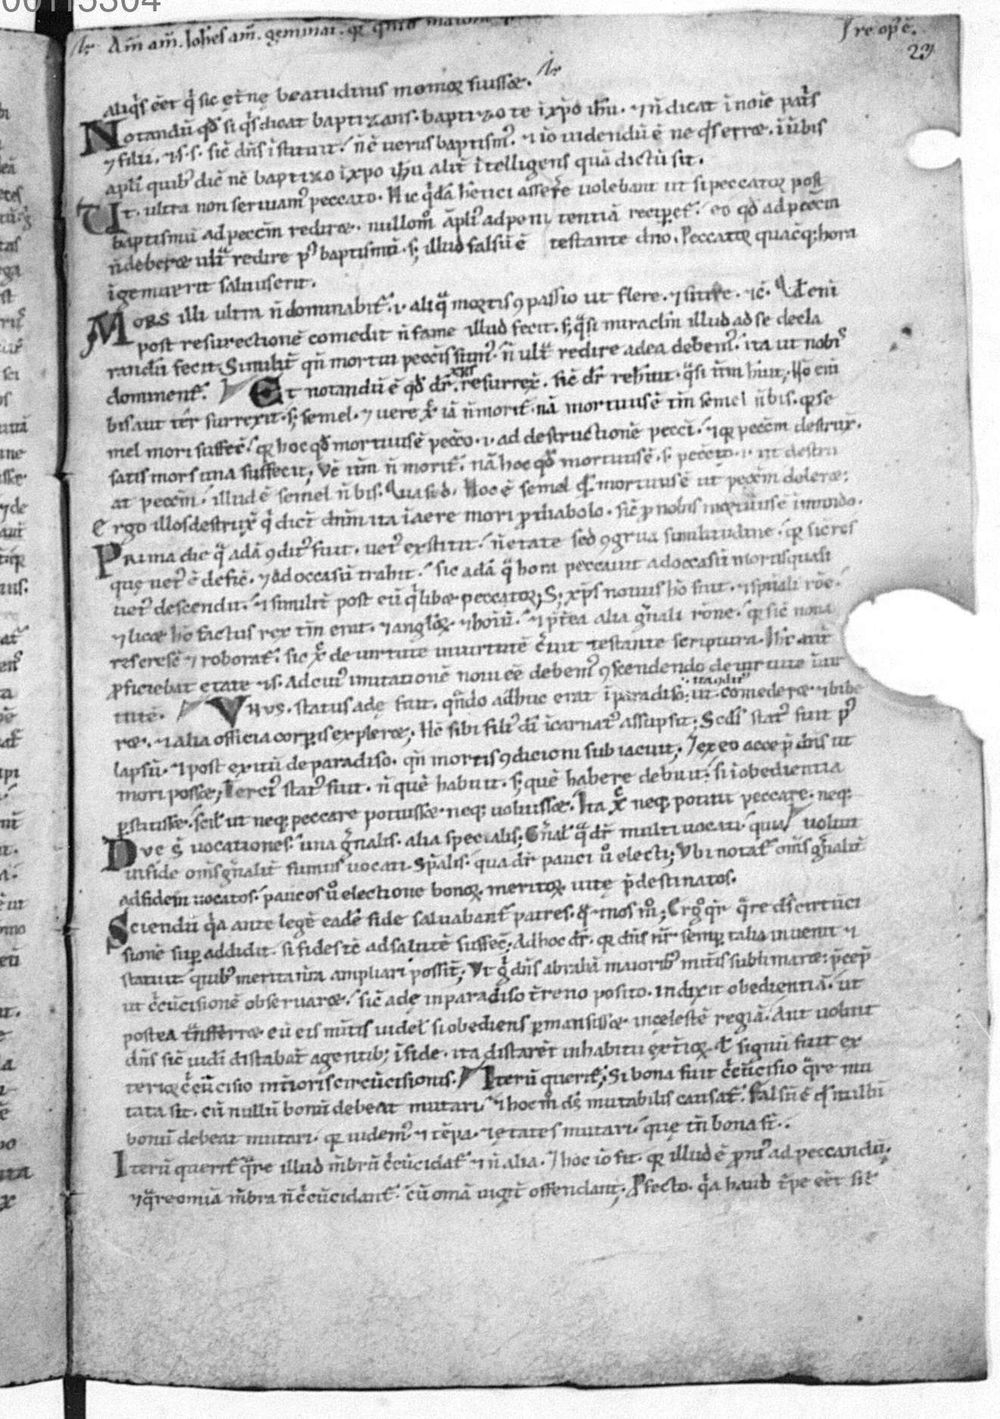 00113304
Am̄ am̄. Ioh̄es am̄. geminat. qꝛ
re op̄e.
23
aliq̄s eēt q̄ sic et nę beatudinis momoꝝ fuissæ.
Notandū qd̄ si q̄s dicat baptizans. baptizo te i xp̄o ih̄u. ⁊ n̄ dicat i noīe pat̄s
⁊ filii. ⁊ s. s. sic̄ dn̄s istituit. n̄ ē verus baptism᷒. ⁊ iō uidendū ē ne q̄s erræ. i ūbis
apl̄i quib᷒ dic̄ nē baptizo i xp̄o ih̄u alit̄ itelligens quā dictū sit.
Ut. ultra non seruiam᷒ peccato. Hic q̄dā h̄etici asserē uolebant ut si peccatoꝝ post
baptismū ad peccm̄ redire. nullom̄ āpli᷒ ad penitentiā reciꝑet᷒. eo qd̄ ad peccm̄
n̄ deberæ ult̄ redire p᷒ baptismū. sꝫ illud falsū ē testante dn̄o. Peccatoꝝ quacūqꝫ hora
igemuerit saluus erit.
Mors illi ultra n̄ dominabit᷒. i. aliq̄ mortis ꝯpassio ut flere. ⁊ sitire. ⁊c̄. Qd̄ eni
post resurectionē comedit n̄ fame illud fecit. sꝫ q̄si miraclm̄ illud ad se decla
randū fecit. Similit̄ qn̄ mortui peccīs sum᷒. n̄ ult̄ redire ad ea debem᷒. ita ut nob̄
dominent᷒. Et notandū ē qd̄ dr̄. xp̄c resurrex̄. sic̄ dr̄
bis aut ter̄ surrexit. sꝫ semel. ⁊ uere x̄ iā n̄ morit᷒. nā mortuus ē tm̄ semel n̄ bis. qꝛ se
mel mori suffec̄. qꝛ hoc qd̄ mortuus ē pecco. i. ad destructionē pecci. ⁊ qꝛ peccm̄ destrux̄.
satis mors una suffecit. n̄ morit᷒. nā hoc qd̄ mortuus ē. pecco. i. ut destru
at peccm̄. illud ē semel n̄ bis. Hoc ē semel mortuus ē ut peccm̄ doleræ.
Ergo illos destrux̄ q̄ dic̄t dnm̄ ita i aere mori ꝓ diabolo. sic̄ ꝓ nobis mortuus ē i mundo.
Prima die q̄ adā ꝯdit᷒ fuit. uet᷒ exstitit. n̄ etate sed ꝯgrua similitudine. qꝛ sic res
quę uet᷒ ē defic̄. ⁊ ad occasū trahit᷒. sic adā q̄ hora peccauit ad occasū mortis quasi
uet᷒ descendit. ⁊ similit̄ post eū q̄libæ peccatoꝝ. Sꝫ xp̄s nouus hō fuit. ⁊ spūali rōe.
⁊ licæ hō factus rex tm̄ erat. ⁊ angl̄oꝝ. ⁊ hoīū. ⁊ p̄terea alia gn̄ali rōne. qꝛ sic̄ noua
res ⁊ roborat᷒. sic x̄ de uirtute in uirtutē testante scriptura.
ꝓficiebat etate ⁊ s. Ad cui᷒ imitationē noui eē debem᷒ ꝯscendendo de uirtute i uir
tutē. Unus. status adę fuit. qn̄do adhuc erat i paradiso. ut. comederæ ⁊ bibe
ræ. ⁊ alia officia corꝑis expleræ. Hc̄ sibi fili᷒ di icarnat᷒ assūpsit. Scd̄s stat᷒ fuit p᷒
lapsū. ⁊ post exitū de paradiso. qn̄ mortis ꝯdicioni subiacuit. ⁊ ex eo accep̄ dn̄s ut
mori possæ. Terci᷒ stat᷒ fuit. n̄ quē habuit. sꝫ quē habere debuit. si i obedientia
ꝑstitissæ. scil̄ ut neqꝫ peccare potuissæ neqꝫ uoluissæ. Ita x̄ neqꝫ potuit peccare. neqꝫ
uoluit
Dvę s̄ uocationes. una gn̄alis. alia specialis. Gn̄al᷒ q̄ dr̄ multi uocati. quia
in fide om̄s gn̄alit̄ sumus uocati. Sp̄alis. qua dr̄ pauci ū electi. Ubi notat᷒ om̄s gn̄alit̄
ad fidem uocatos. paucos ū electione bonoꝝ meritoꝝ uitę p̄destinatos.
Sciendū q̄a ante legē eadē fide saluabant᷒ patres. q̄ ⁊ nos m̊. Ergo q̄r̄ q̄re ds̄ circūci
sionē suꝑ addidit. si fides tc̄ ad salutē suffec̄. Ad hoc dr̄. qꝛ dn̄s nr̄ semꝑ talia inuenit ⁊
statuit quib᷒ merita nr̄a ampliari possīt. Ut ḡ dn̄s abrahā maiorib᷒ mītis sublimaræ. p̄cep̄
ut c̄cūcisionē obseruaræ. sic̄ adę in paradiso t̄reno posito. indixit obedientiā. ut
postea tn̄sferræ eū eis mītis uidel᷒ si obediens ꝑmansissæ in celestē regiā. Aut uoluit
dn̄s sic̄ iudi distabāt a gentibꝫ i fide. ita distarēt in habitu exterioꝝ. Et signū fuit ex
terioꝝ c̄cūcisio int̄ioris circūcisionis. Iterū querit᷒. Si bona fuit c̄cūcisio q̄re mu
tata sit. cū nullū bonū debeat mutari. ⁊ hoc m̊ ds̄ mutabilis causat᷒. Falsū ē qd̄ nullū
bonū debeat mutari. qꝛ uidem᷒ ⁊ tēpa. ⁊ ętates mutari. quę tn̄ bona st̄.
Iterū querit᷒ q̄re illud m̄brū c̄cūcidat᷒ ⁊ n̄ alia. ⁊ hoc iō fit. qꝛ illud ē ꝓni᷒ ad peccandū.
⁊ q̄re omnia m̄bra n̄ c̄cūcidant᷒. cū om̄ia iugit̄ offendant. Ꝓfecto. q̄a haud t̄pe eēt